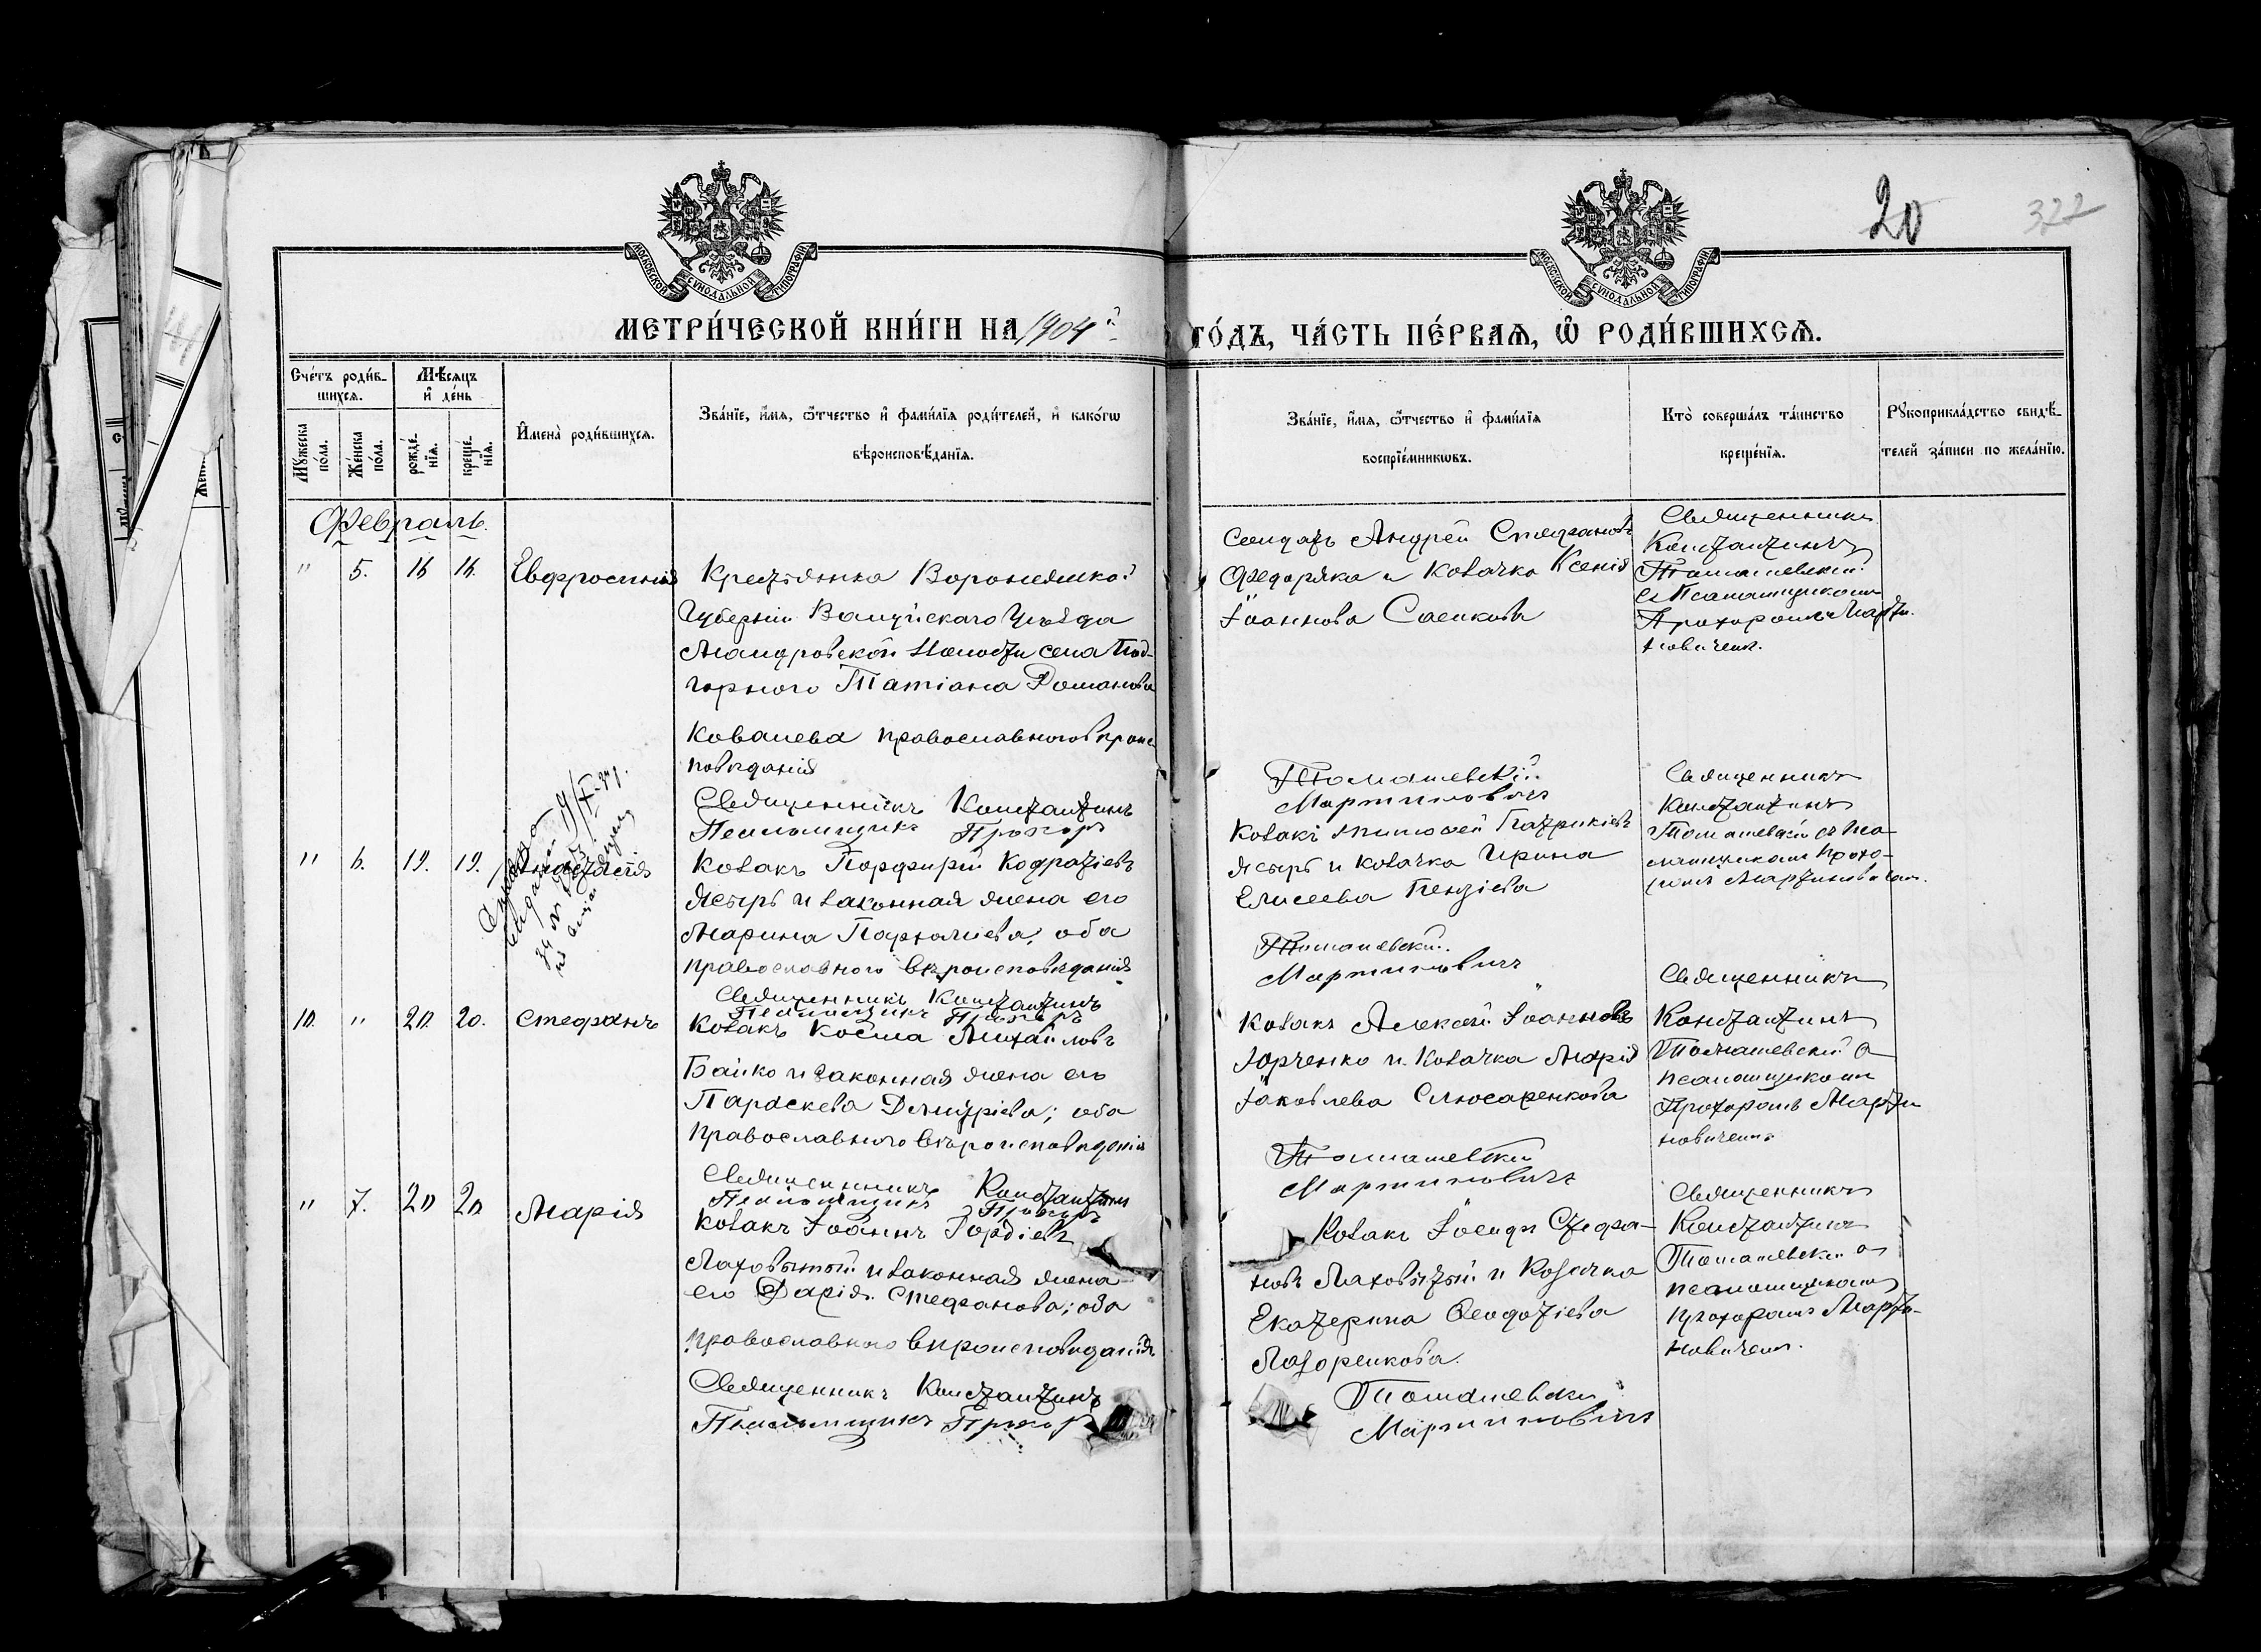 20
322
МОСКОВСКОЙ СѴНОДАЛЬНОЙ ТИПОГРАФІИ
МОСКОВСКОЙ СѴНОДАЛЬНОЙ ТИПОГРАФІИ
МЕТРИ́ЧЕСКОЙ КНИ́ГИ НА 1904й ГО́ДЪ, ЧА́СТЬ ПЕ́РВАѦ, Ѽ РОДИ́ВШИХСѦ.
Сче́тъ роди́в-
шихсѧ.
Мꙋжеска по́ла.
Же́нска по́ла.
Мѣ́сѧцъ
и де́нь
рожде́-
нїѧ.
креще́-
нїѧ.
Имена̀ роди́вшихсѧ.
Зва́нїе, и́мѧ, ѻ́тчество и фами́лїѧ роди́телей, и како́гѡ
вѣроисповѣ́данїѧ.
Зва́нїе, и́мѧ, ѻ́тчество и фами́лїѧ
воспрїе́мникѡвъ.
Кто̀ соверша́лъ та́инство
креще́нїѧ.
Рꙋкоприкла́дство свидѣ́-
телей за́писи по жела́нїю.
Февраль.
" 5. 16 16. Евфросинія
Крестьянка Воронежской
Губерніи Валуйскаго Уѣзда
Мандровской Волости села Под-
горного Татіана Романова
Ковалева православного вѣроис-
повѣданія
Священникъ Константинъ
Псаломщикъ Прохоръ
Солдатъ Андрей Стефановъ
Федоряка и Козачка Ксенія
Іоаннова Саенкова
Томашевскій
Мартиновичъ
Священникъ
Константинъ
Томашевскій
съ Псаломщикомъ
Прохоромъ Марти-
новичемъ.
" 6. 19. 19. Анастасія
Козакъ Порфирій Кодратіевъ
Ясыръ и законная жена его
Марина Парфеміева; оба
православного вѣроисповѣданія
Священникъ Константинъ
Псаломщикъ Прохоръ
Козакъ Тимофей Патрикіевъ
Ясыръ и козачка Ирина
Елисеева
Томашевскій
Мартиновичъ
Священникъ
Константинъ
Томашевскій съ Пса-
ломщикомъ Прохо-
ромъ Мартиновичемъ.
10. " 20. 20. Стефанъ
Козакъ Косма Михайловъ
Байко и законная жена его
Параскева Димитріева; оба
православного вѣроисповѣданія
Священникъ Константинъ
Псаломщикъ Прохоръ
Козакъ Алексѣй Іоанновъ
Юрченко и Козачка Марія
Іаковлева Слюсаренкова
Томашевскій
Мартиновичъ
Священникъ
Константинъ
Томашевскій съ
псаломщикомъ
Прохоромъ Марти-
новичемъ
" 7. 20 20 Марія
Козакъ Іоаннъ Гордіевъ
Лаховытый и законная жена
его Дарія Стефанова; оба
православного вѣроисповѣданія
Священникъ Константинъ
Псаломщикъ Прохоръ
Козакъ Іосифъ Стефа-
новъ Лаховытый и Козачка
Екатерина Феодотіева
Лазоренкова.
Томашевскій
Мартиновичъ
Священникъ
Константинъ
Томашевскій съ
псаломщикомъ
Прохоромъ Марти-
новичемъ.